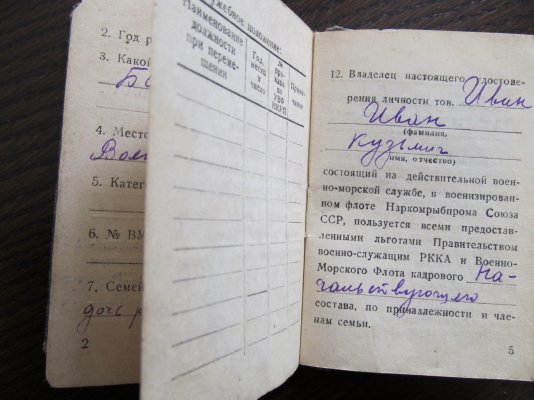 2. Год
3. Какой
4. Место
5. Катег
6. №
7. Семей
дочь
2
служебное положение:
Наименование должности при перемещении
Год, месяц и число
Приме-чание
12. Владелец настоящего удостове-
рения личности тов. Иван
Иван
(фамилия,
Кузьмич
имя, отчество)
состоящий на действительной воен-
но-морской службе, в военизирован-
ном флоте Наркомрыбпрома Союза
ССР, пользуется всеми предостав-
ленными льготами Правительством
военно-служащим РККА и Военно-
Морского Флота кадрового На-
чальствующего
состава, по принадлежности и чле-
нам семьи.
5